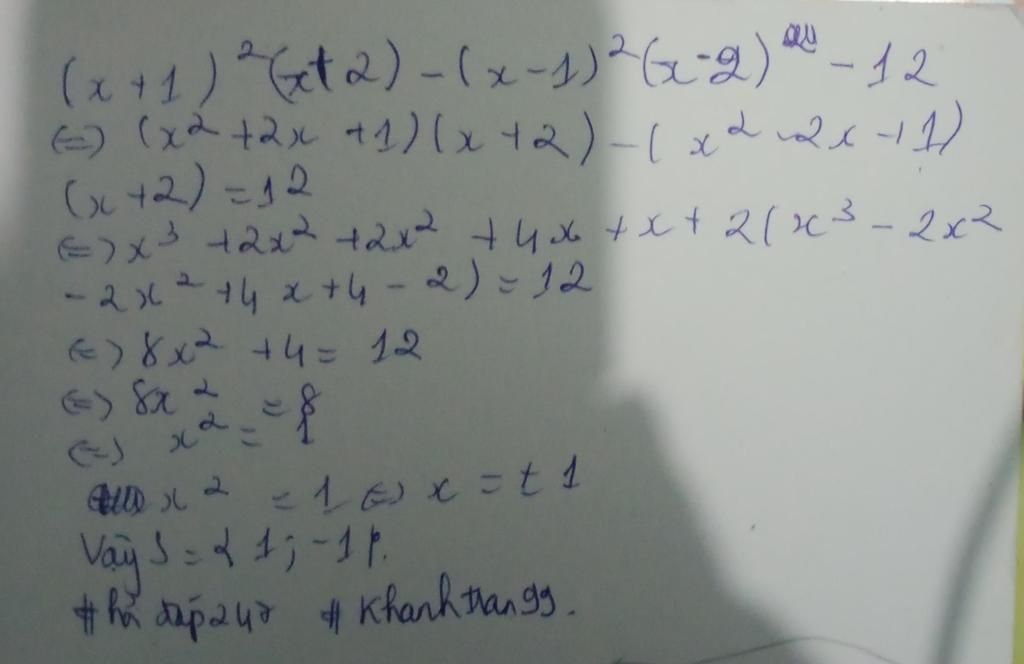 (x+1)²(x+2) - (x-1)²(x-2) - 12
<=> (x²+2x+1)(x+2) - (x²-2x+1)
(x+2) = 12
<=> x³ + 2x² + 2x² + 4x + x + 2(x³ - 2x²
- 2x² + 4x + 4 - 2) = 12
<=> 8x² + 4 = 12
<=> 8x² = 8
<=> x² = 1
x² = 1 <=> x = ± 1
Vậy S = { 1; -1 }.
# hỏi đáp 247 # Khanhtran99.